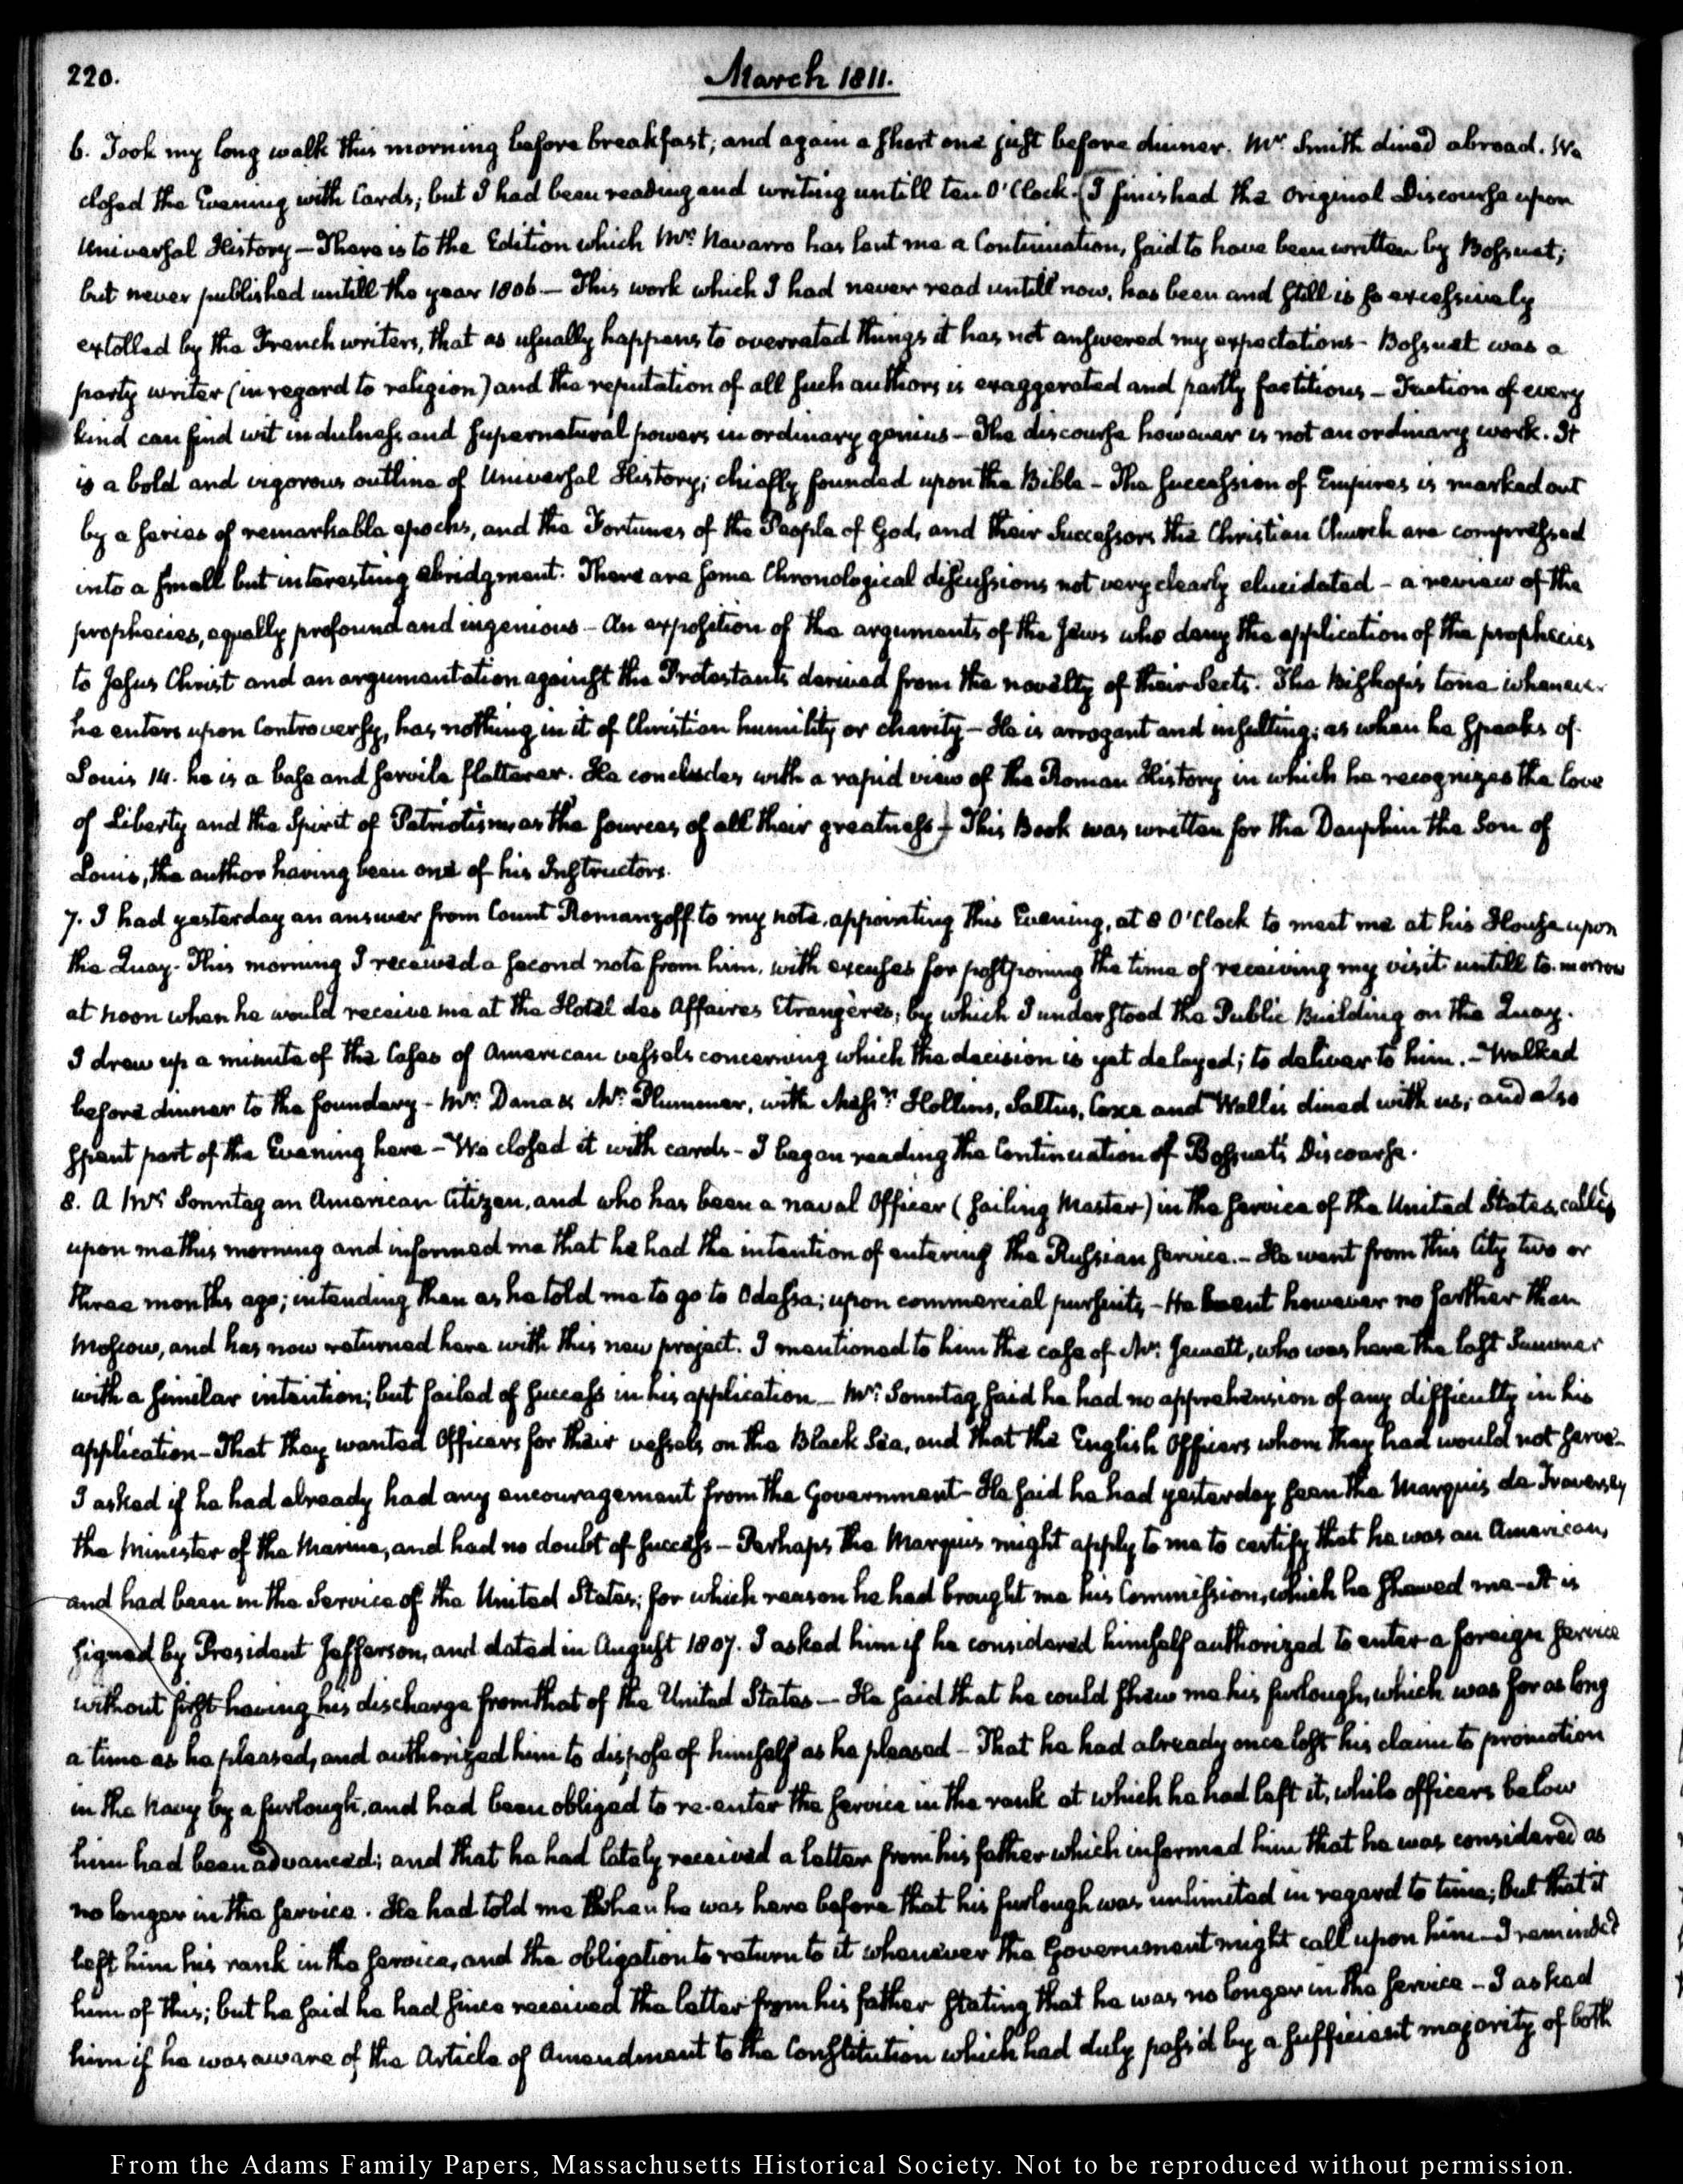 220.
March 1811.
6. Took my long walk this morning before breakfast; and again a short one just before dinner. Mr. Smith dined abroad. We
closed the Evening with Cards; but I had been reading and writing untill ten O'Clock. (I finished the original Discourse upon
Universal History — There is to the Edition which Mr. Navarro has lent me a Continuation, said to have been written by Bossuet;
but never published untill the year 1806 — This work which I had never read untill now, has been and still is so excessively
extolled by the French writers, that as usually happens to overrated things it has not answered my expectations — Bossuet was a
party writer (in regard to religion) and the reputation of all such authors is exaggerated and partly factitious — Faction of every
kind can find wit in dulness, and supernatural powers in ordinary genius — The discourse however is not an ordinary work. It
is a bold and vigorous outline of Universal History; chiefly founded upon the Bible — The succession of Empires is marked out
by a series of remarkable epochs, and the Fortunes of the People of God, and their Successors the Christian Church are compressed
into a small but interesting abridgment. There are some Chronological discussions not very clearly elucidated — a review of the
prophecies, equally profound and ingenious — An exposition of the arguments of the Jews who deny the application of the prophecies
to Jesus Christ and an argumentation against the Protestants derived from the novelty of their Sects. The Bishop's tone whenever
he enters upon Controversy, has nothing in it of Christian humility or charity — He is arrogant and insulting; as when he speaks of
Louis 14. he is a base and servile flatterer. He concludes with a rapid view of the Roman History in which he recognizes the love
of Liberty and the Spirit of Patriotism, as the sources of all their greatness) — This Book was written for the Dauphin the Son of
Louis, the author having been one of his Instructors.
7. I had yesterday an answer from Count Romanzoff to my note, appointing this Evening, at 8 O'Clock to meet me at his House upon
the Quay. This morning I received a second note from him, with excuses for postponing the time of receiving my visit untill to-morrow
at noon when he would receive me at the Hotel des Affaires Etrangères; by which I understood the Public Building on the Quay.
I drew up a minute of the Cases of American vessels concerning which the decision is yet delayed; to deliver to him. — Walked
before dinner to the foundery — Mr. Dana & Mr. Plummer, with Messrs. Hollins, Saltus, Coxe and Wallis dined with us; and also
spent part of the Evening here — We closed it with cards — I began reading the Continuation of Bossuet's Discourse.
8. A Mr. Sonntag an American Citizen, and who has been a naval Officer (sailing Master) in the service of the United States, called
upon me this morning and informed me that he had the intention of entering the Russian service. — He went from this City two or
three months ago; intending then as he told me to go to Odessa; upon commercial pursuits — He went however no farther than
Moscow, and has now returned here with this new project. I mentioned to him the case of Mr. Jewett, who was here the last Summer
with a similar intention; but failed of success in his application — Mr. Sonntag said he had no apprehension of any difficulty in his
application — That they wanted Officers for their vessels on the Black Sea, and that the English Officers whom they had would not serve —
I asked if he had already had any encouragement from the Government — He said he had yesterday seen the Marquis de Traversey
the Minister of the Marine, and had no doubt of success — Perhaps the Marquis might apply to me to certify that he was an American,
and had been in the Service of the United States; for which reason he had brought me his Commission, which he shewed me — It is
signed by President Jefferson, and dated in August 1807. I asked him if he considered himself authorized to enter a foreign service
without first having his discharge from that of the United States — He said that he could shew me his furlough, which was for as long
a time as he pleased, and authorized him to dispose of himself as he pleased — That he had already once lost his claim to promotion
in the Navy by a furlough, and had been obliged to re-enter the service in the rank at which he had left it, while officers below
him had been advanced; and that he had lately received a letter from his father which informed him that he was considered as
no longer in the service. He had told me when he was here before that his furlough was unlimited in regard to time; but that it
left him his rank in the service, and the obligation to return to it whenever the Government might call upon him — I reminded
him of this; but he said he had since received the letter from his father stating that he was no longer in the service — I asked
him if he was aware of the Article of Amendment to the Constitution which had duly pass'd by a sufficient majority of both
From the Adams Family Papers, Massachusetts Historical Society. Not to be reproduced without permission.